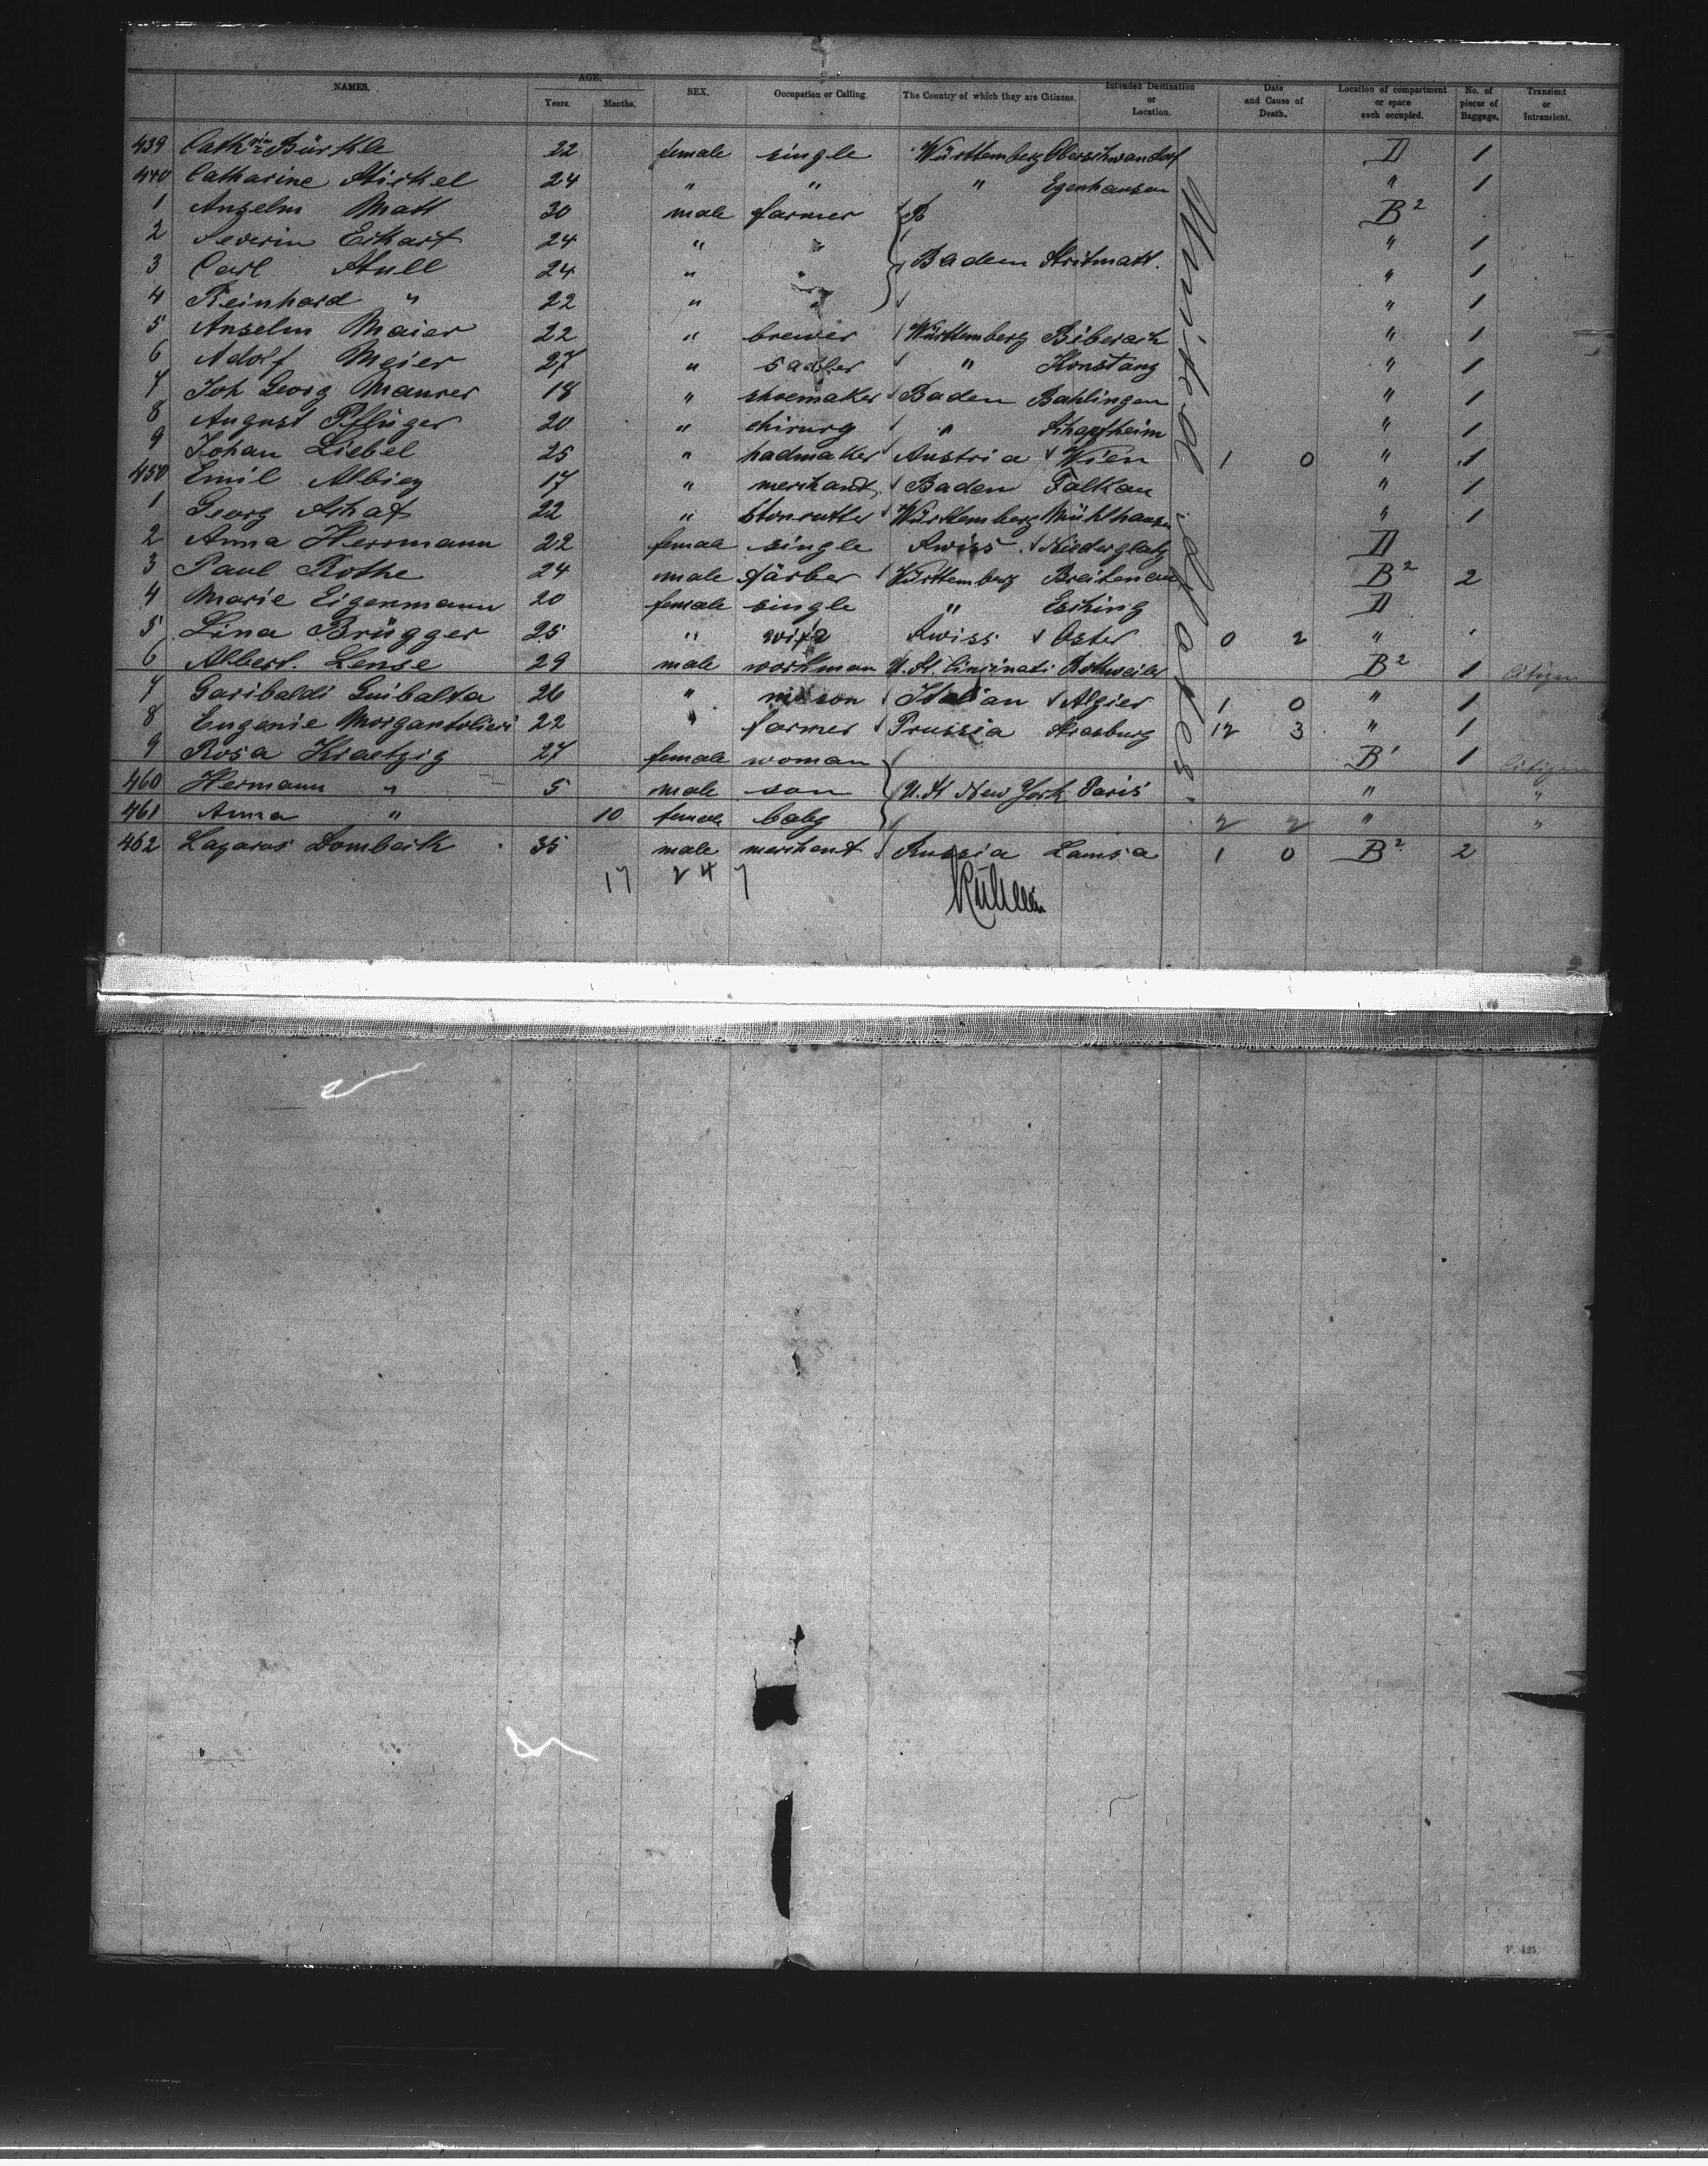 NAMES. AGE. Years. Months. SEX. Occupation or Calling. The Country of which they are Citizens. Intended Destination or Location. Date and Cause of Death. Location of compartment or space each occupied. No. of pieces of Baggage. Transient or Intransient.
439 Cathrin Bürkle 22 female single Württemberg Oberschwandorf D 1
440 Catharine Stickel 24 " " " Egenhausen " 1
1 Anselm Matt 30 male farmer B²
2 Severin Eckart 24 " " " 1
3 Carl Stull 24 " " Baden Stritmatt. " 1
4 Reinhard " 22 " " " 1
5 Anselm Maier 22 " brewer Württemberg Biberach " 1
6 Adolf Meier 27 " sadler " Konstanz " 1
7 Joh Georg Maurer 18 " shoemaker Baden Bahlingen " 1
8 August Pflüger 20 " chirurg " " 1
9 Johan Liebel 25 " hadmaker Austria Wien 1 0 " 1
450 Emil Albiez 17 " merchant Baden Falkau " 1
1 Georg Schaf 22 " stoncutter Württemberg Mühlhausen " 1
2 Anna Herrmann 22 female single Swiss Niederglatz D
3 Paul Rothe 24 male färber Württemberg Breitenau B² 2
4 Marie Eigenmann 20 female single " D
5 Lina Brügger 25 " wife Swiss Oster 0 2 "
6 Albert Lense 29 male workman U. St. Cincinati Rotweiler B² 1 Citizen
7 Garibaldi Guibalta 26 " mason Italian Algier 1 0 " 1
8 Eugenie 22 " farmer Prussia Strasburg 12 3 " 1
9 Rosa Kraetzig 27 female woman B' 1 Citizen
460 Hermann " 5 male son U. St New York Paris " "
461 Anna " 10 female baby 2 2 " "
462 Lazarus Dombeck 35 male merchant Russia Lamsa 1 0 B² 2
17 24 7
F. 425.